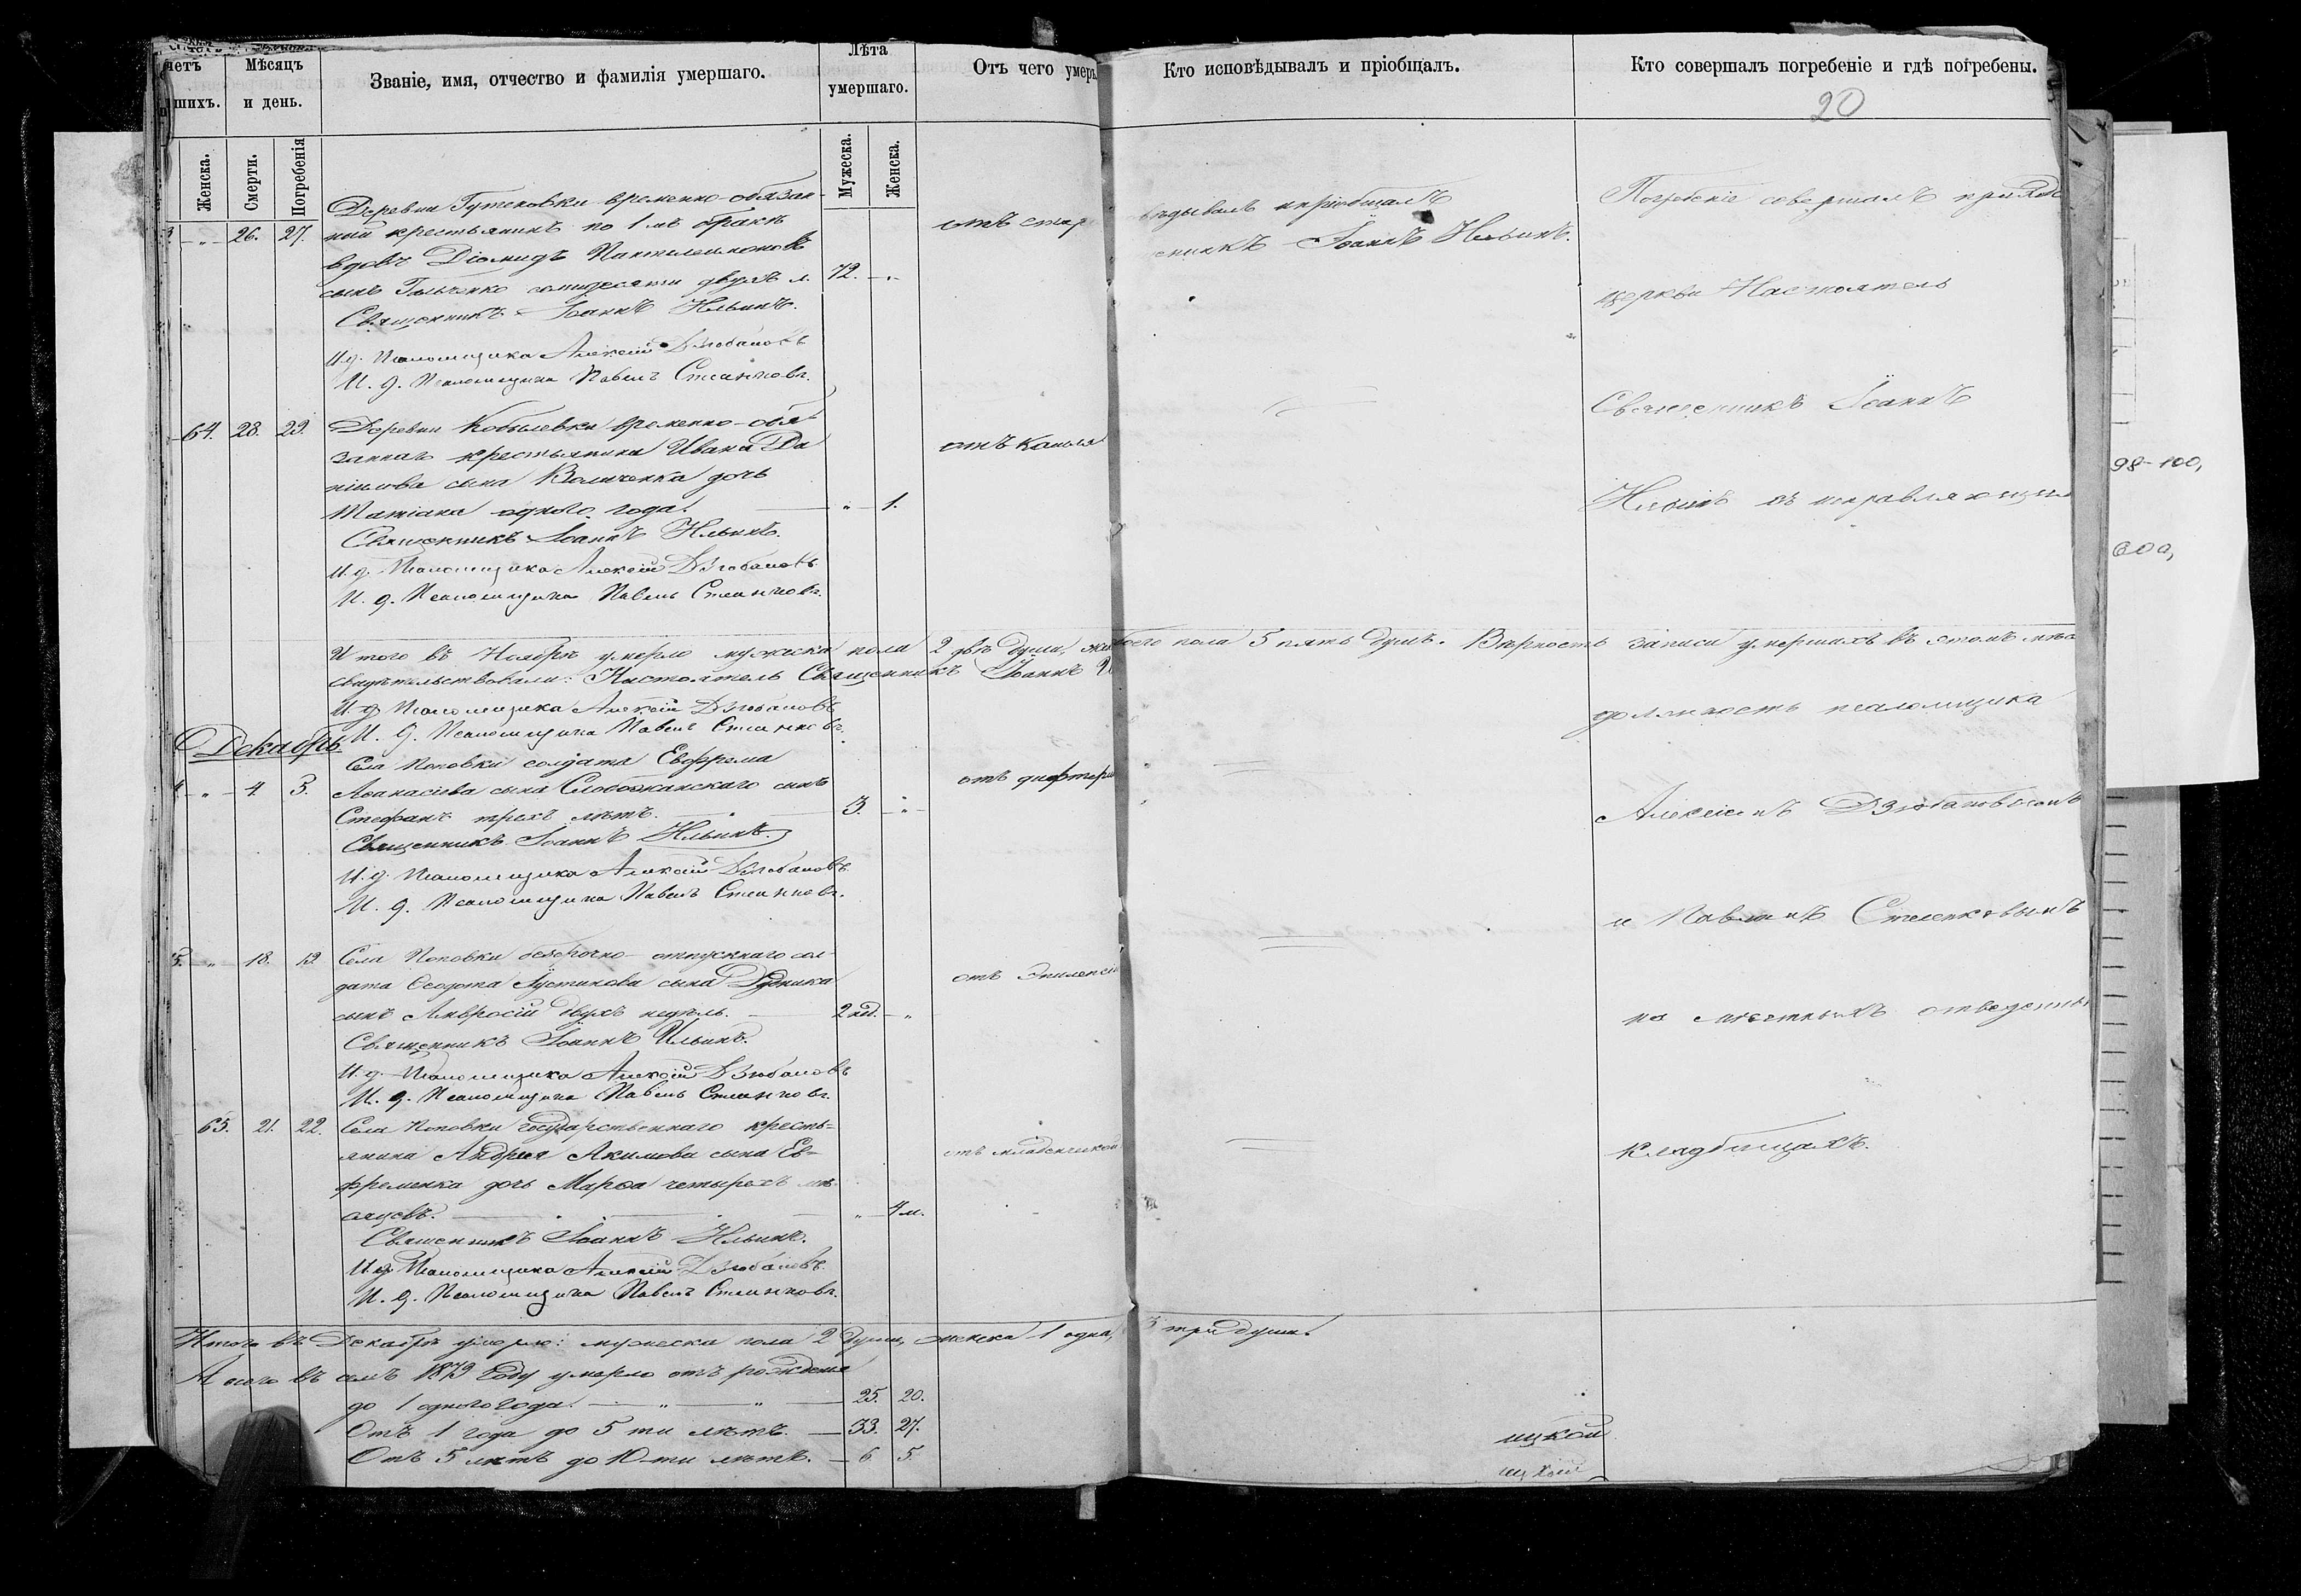 четъ
шихъ.
Мѣсяцъ
и день.
Званіе, имя, отчество и фамилія умершаго.
Лѣта
умершаго.
Отъ чего умер
Женска.
Смерти.
Погребенія
Мужеска.
Женска.
Деревни Гутековки временно-обязан-
" 26. 27. ный крестьянинъ по 1мъ бракѣ
вдовъ Діомидъ Пантелеимоновъ
сынъ семидесяти двухъ л. 72. "
отъ стар
Священникъ Іоаннъ Ильинъ.
И. д. Псаломщика Алексій Дзюбановъ
И. д. Псаломщика Павелъ Стеллинковъ.
64. 28. 29. Деревни Кобылевки временно-обя-
заннаго крестьянина Ивана Да
нілова сына дочь
Татіана одного года. " 1.
отъ кашля
Священникъ Іоаннъ Ильинъ.
И. д. Псаломщика Алексій Дзюбановъ
И. д. Псаломщика Павелъ
Итого въ Ноябрѣ умерло мужеска пола 2 двѣ души, жен
свидѣтельствовали: Настоятель Священникъ Іоаннъ
И. д. Псаломщика Алексій Дзюбановъ
И. д. Псаломщика Павелъ
Декабрь
Села Поповки солдата Евфрема
" 4. 5. Аѳанасіева сына Слобожанскаго сынъ
Стефанъ трехъ лѣтъ. 3. "
отъ дифтери
Священникъ Іоаннъ Ильинъ.
И. д. Псаломщика Алексій Дзюбановъ
И. д. Псаломщика Павелъ
5. " 18. 19. Села Поповки безсрочно-отпускнаго сол-
дата Ѳеодота Іустинова сына Дудника
сынъ Амвросій двухъ недѣль. 2 нед. "
отъ Эпилепсіи
Священникъ Іоаннъ Ильинъ.
И. д. Псаломщика Алексій Дзюбановъ
И. д. Псаломщика Павелъ
65. 21. 22. Села Поповки государственнаго кресть-
янина Андрея Акимова сына Ев-
фременка дочь Марѳа четырехъ мѣ-
сяцевъ. " 4 м.
отъ младенческой
Священникъ Іоаннъ Ильинъ.
И. д. Псаломщика Алексій Дзюбановъ
И. д. Псаломщика Павелъ
Итого въ Декабрѣ умерло: мужеска пола 2 души, женска 1 одна,
А всего въ семъ 1873 году умерло отъ рожденія
до 1 одного года. " " 25. 20.
Отъ 1 года до 5 ти лѣтъ. 33. 27.
Отъ 5 лѣтъ до 10-ти лѣтъ. 6 5.
Кто исповѣдывалъ и пріобщалъ.
Кто совершалъ погребеніе и гдѣ погребены.
20
вѣдывалъ и пріобщалъ
енникъ Іоаннъ Ильинъ.
ского пола 5 пять душъ. Вѣрность записи умершихъ въ этомъ мѣс
3 три души.
Погребеніе совершалъ приход
церкви Настоятель
Священникъ Іоаннъ
Ильинъ съ исправляющим
должность псаломщика
Алексіемъ Дзюбановымъ
и Павломъ
на мѣстныхъ отведенны
кладбищахъ.
98-100,
600,